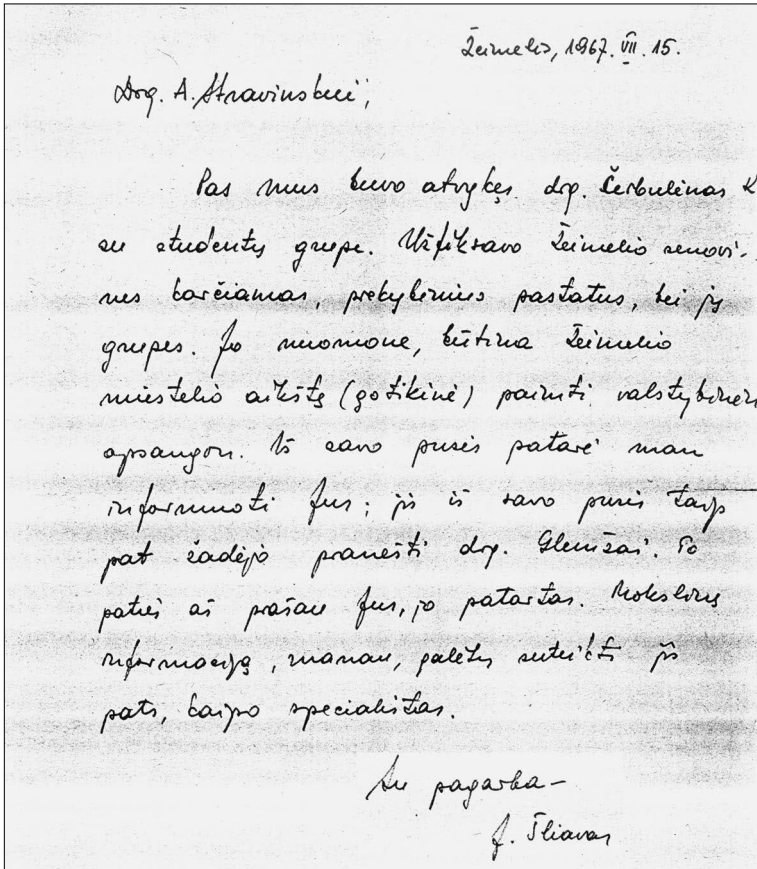 Žeimelis, 1967. VII. 15.
Drg. A. Stravinskui,
Pas mus buvo atvykęs drg. Čerbulėnas K
su studentų grupe. Užfiksavo Žeimelio senovi-
nes karčiamas, prekybinius pastatus bei jų
grupes. Jo nuomone, būtina Žeimelio
miestelio aikštę (gotikinė) paimti valstybinėn
apsaugon. Iš savo pusės patarė man
informuoti Jus; jis iš savo pusės taip
pat žadėjo pranešti drg. Glemžai. To
paties aš prašau Jus, jo patartas. Mokslinę
informaciją, manau, galėtų suteikti jis
pats, kaipo specialistas.
Su pagarba —
J. Šliavas